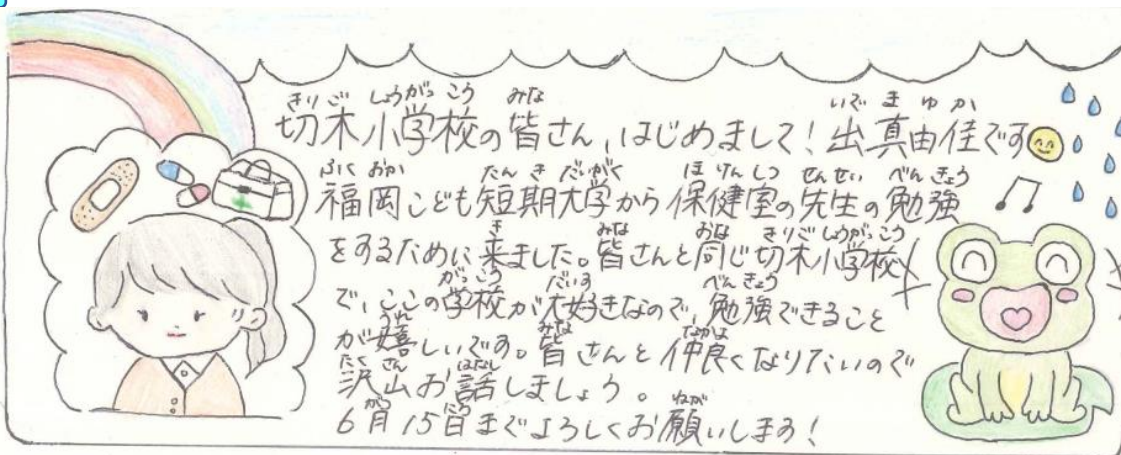 切木小学校の皆さん、はじめまして！出真由佳です
福岡こども短期大学から保健室の先生の勉強
をするために来ました。皆さんと同じ切木小学校
で、ここの学校が大好きなので、勉強できること
が嬉しいです。皆さんと仲良くなりたいので
沢山お話しましょう。
6月15日までよろしくお願いします！